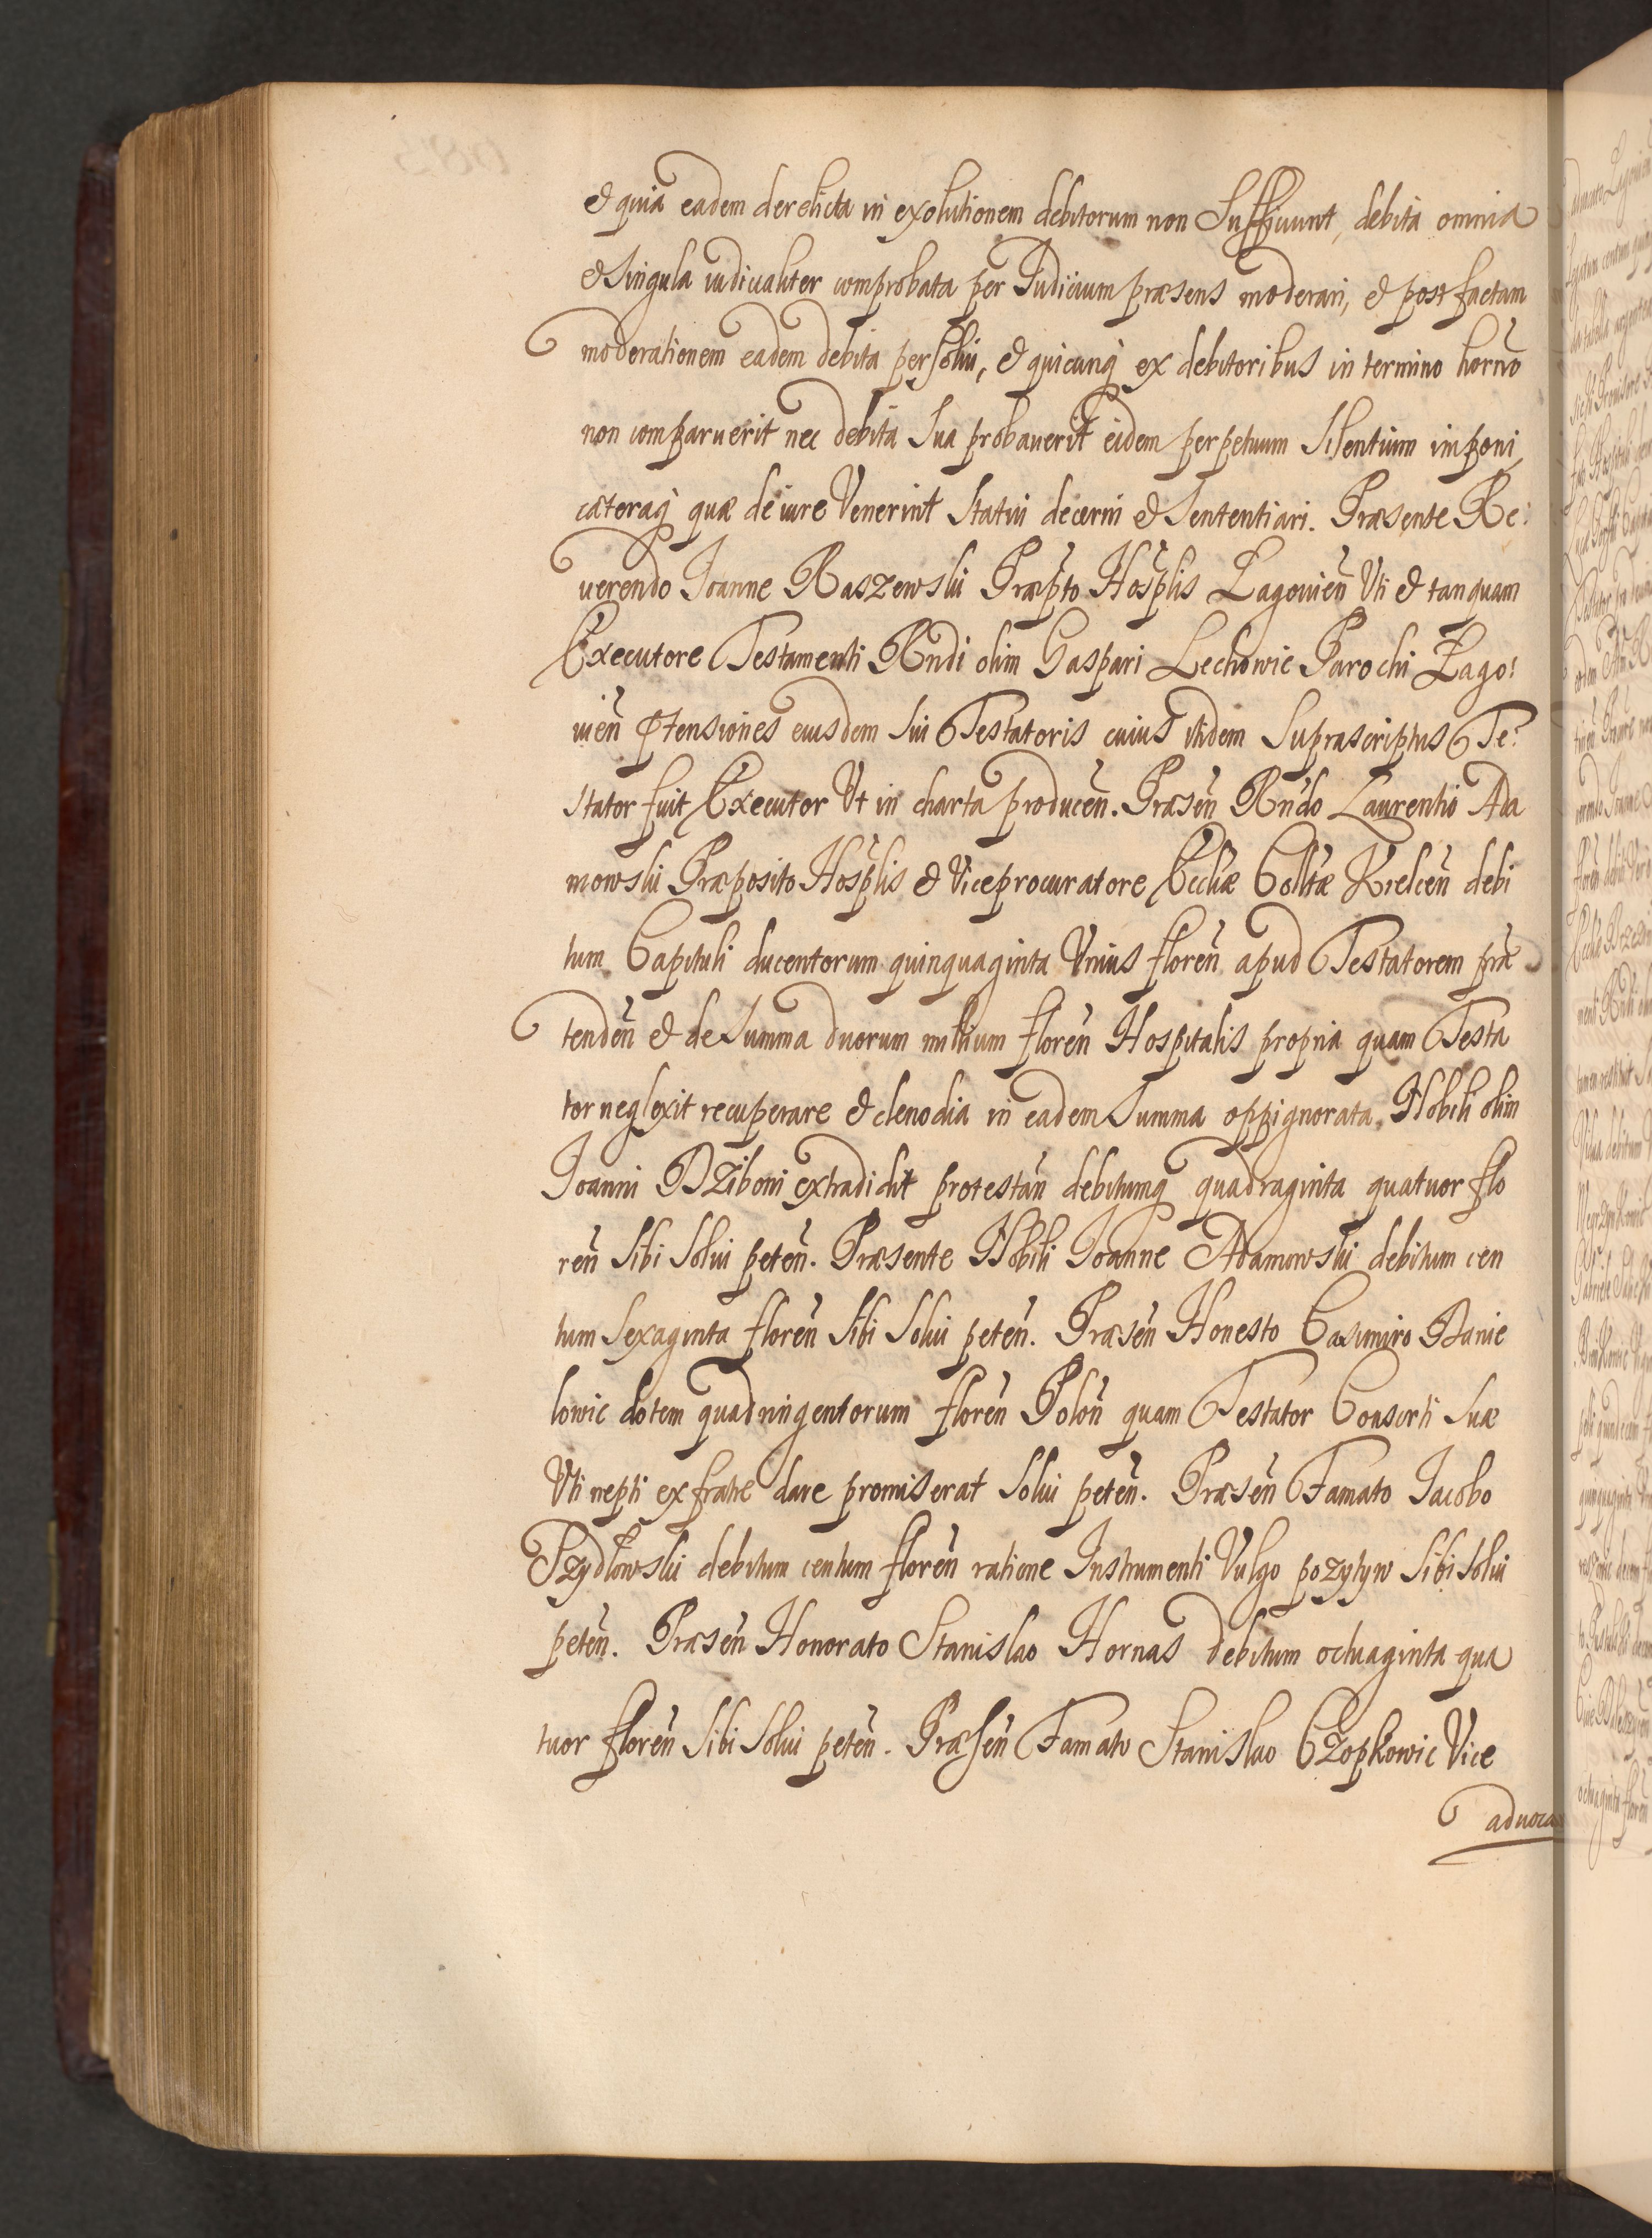 & quia eadem derelicta in exolutionem debitorum non Sufficiunt, debita omnia
& Singula iudicialiter comprobata per Iudicium præsens moderari, & post factam
moderationem eadem debita persolui, & quicunq̀ ex debitoribus in termino horno
non comparuerit nec debita Sua probauerit eidem perpetuum Silentium imponi,
cæteraq̀ quæ de iure Venerint Statui decerni & Sententiari. Præsente Re:
uerendo Ioanne Raszewski Præpto Hosplis Lagouien̄ Vti & tanquam
Executore Testamenti Rndi olim Gaspari Lechowic Parochi Lago:
uien̄ p̄tensiones eiusdem Sui Testatoris cuius itidem Suprascriptus Te:
stator fuit Executor Vt in charta producen̄. Præsen̄ Rndo Laurentio Ada
mowski Præposito Hosplis & Viceprocuratore Eccliæ Colltæ Kielcen̄ debi
tum Capituli ducentorum quinquaginta Vnius floren̄ apud Testatorem præ
tenden̄ & de Summa duorum millium floren̄ Hospitalis propria quam Testa
tor neglexit recuperare & clenodia in eadem Summa oppignorata. Nobili olim
Ioanni Dziboni extradidit protestan̄ debitumq̀ quadraginta quatuor flo
ren̄ Sibi Solui peten̄. Præsente Nobili Ioanne Adamowski debitum cen
tum Sexaginta floren̄ Sibi Solui peten̄. Præsen̄ Honesto Casimiro Danie
lowic dotem quadringentorum floren̄ Polon̄ quam Testator Consorti Suæ
Vti nepti ex fratre dare promiserat Solui peten̄. Præsen̄ Famato Iacobo
Szydłowski debitum centum floren̄ ratione Instrumenti Vulgo pozytyw Sibi Solui
peten̄. Præsen̄ Honorato Stanislao Hornas debitum octuaginta qua
tuor floren̄ Sibi Solui peten̄. Præsen̄ Famato Stanislao Czopkowic Vice
aduoca